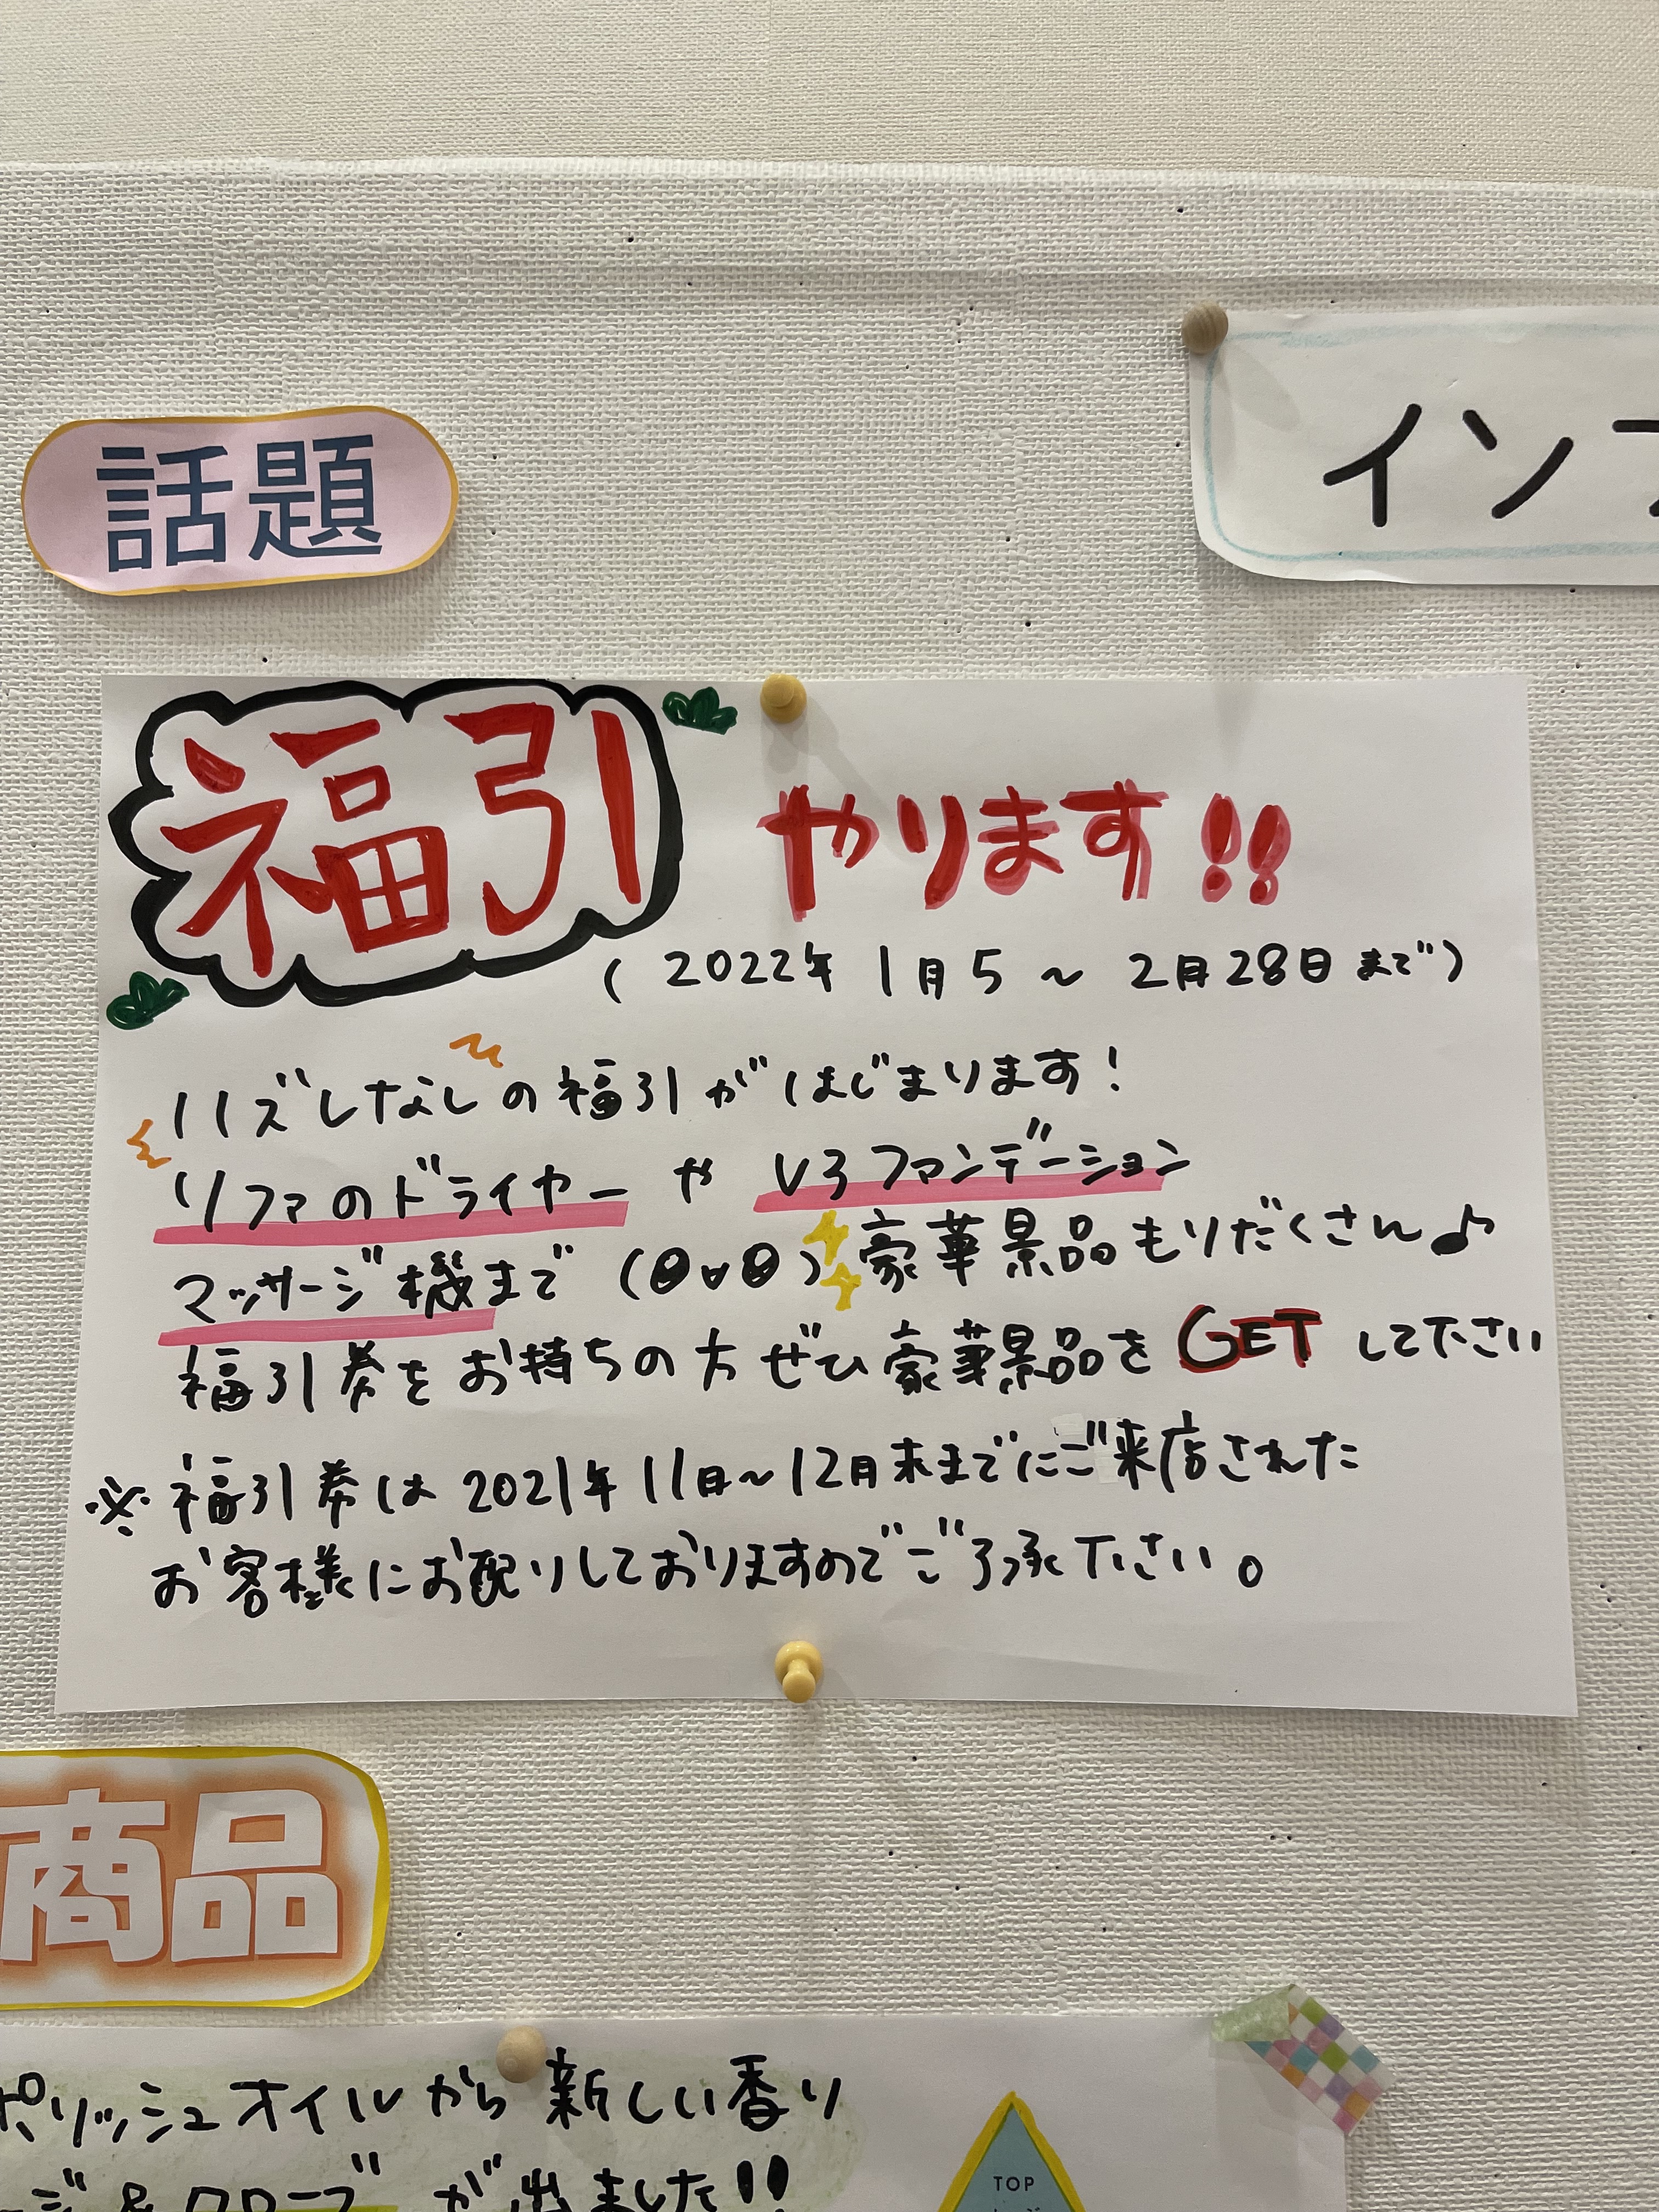 話題
イン
福引やります!!
(2022年1月5～2月28日まで)
ハズレなしの福引がはじまります!
リファのドライヤーやV3ファンデーション
マッサージ機まで(θvθ)豪華景品もりだくさん♪
福引券をお持ちの方ぜひ豪華景品をGETして下さい
※福引券は2021年11月～12月末までにご来店された
お客様にお配りしておりますのでご了承下さい。
商品
ポリッシュオイルから新しい香り
ジ&クローブが出ました!!
TOP